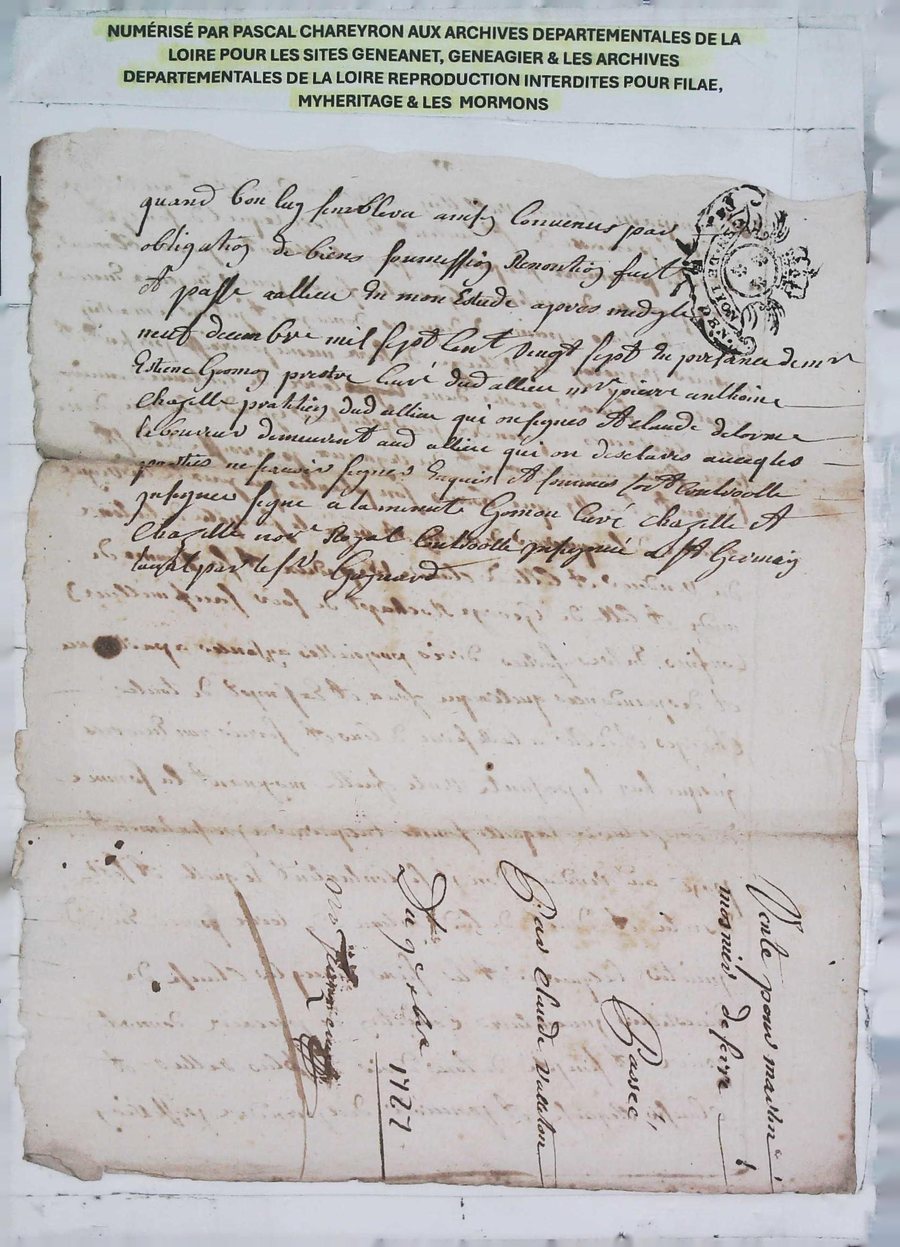 NUMÉRISÉ PAR PASCAL CHAREYRON AUX ARCHIVES DEPARTEMENTALES DE LA
LOIRE POUR LES SITES GENEANET, GENEAGIER & LES ARCHIVES
DEPARTEMENTALES DE LA LOIRE REPRODUCTION INTERDITES POUR FILAE,
MYHERITAGE & LES MORMONS
quand bon luy semblera ainsy Convenus par
obligation de biens soumission Renontion fait
Et passé aallieu En mon Estude apres midy le
neuf decembre mil sept Cent vingt sept En presance de mre
Estiene Gomon prestre Curé dud allieu mr pierre anthoine
Chazelle pratitien dud allieu qui on signes Et claude delorme
laboureur demeurant aud allieu qui on desclares avecq les
parties ne scavoir signer Enquis Et sommes
signé a la minute Gomon Curé Chazelle Et
Chazelle nore Royal Controollé St Germain
laval par le Sr Goynard
DE LION
Vente pour
de serre
Passée,
Par Claude
Du 9e xbre 1727